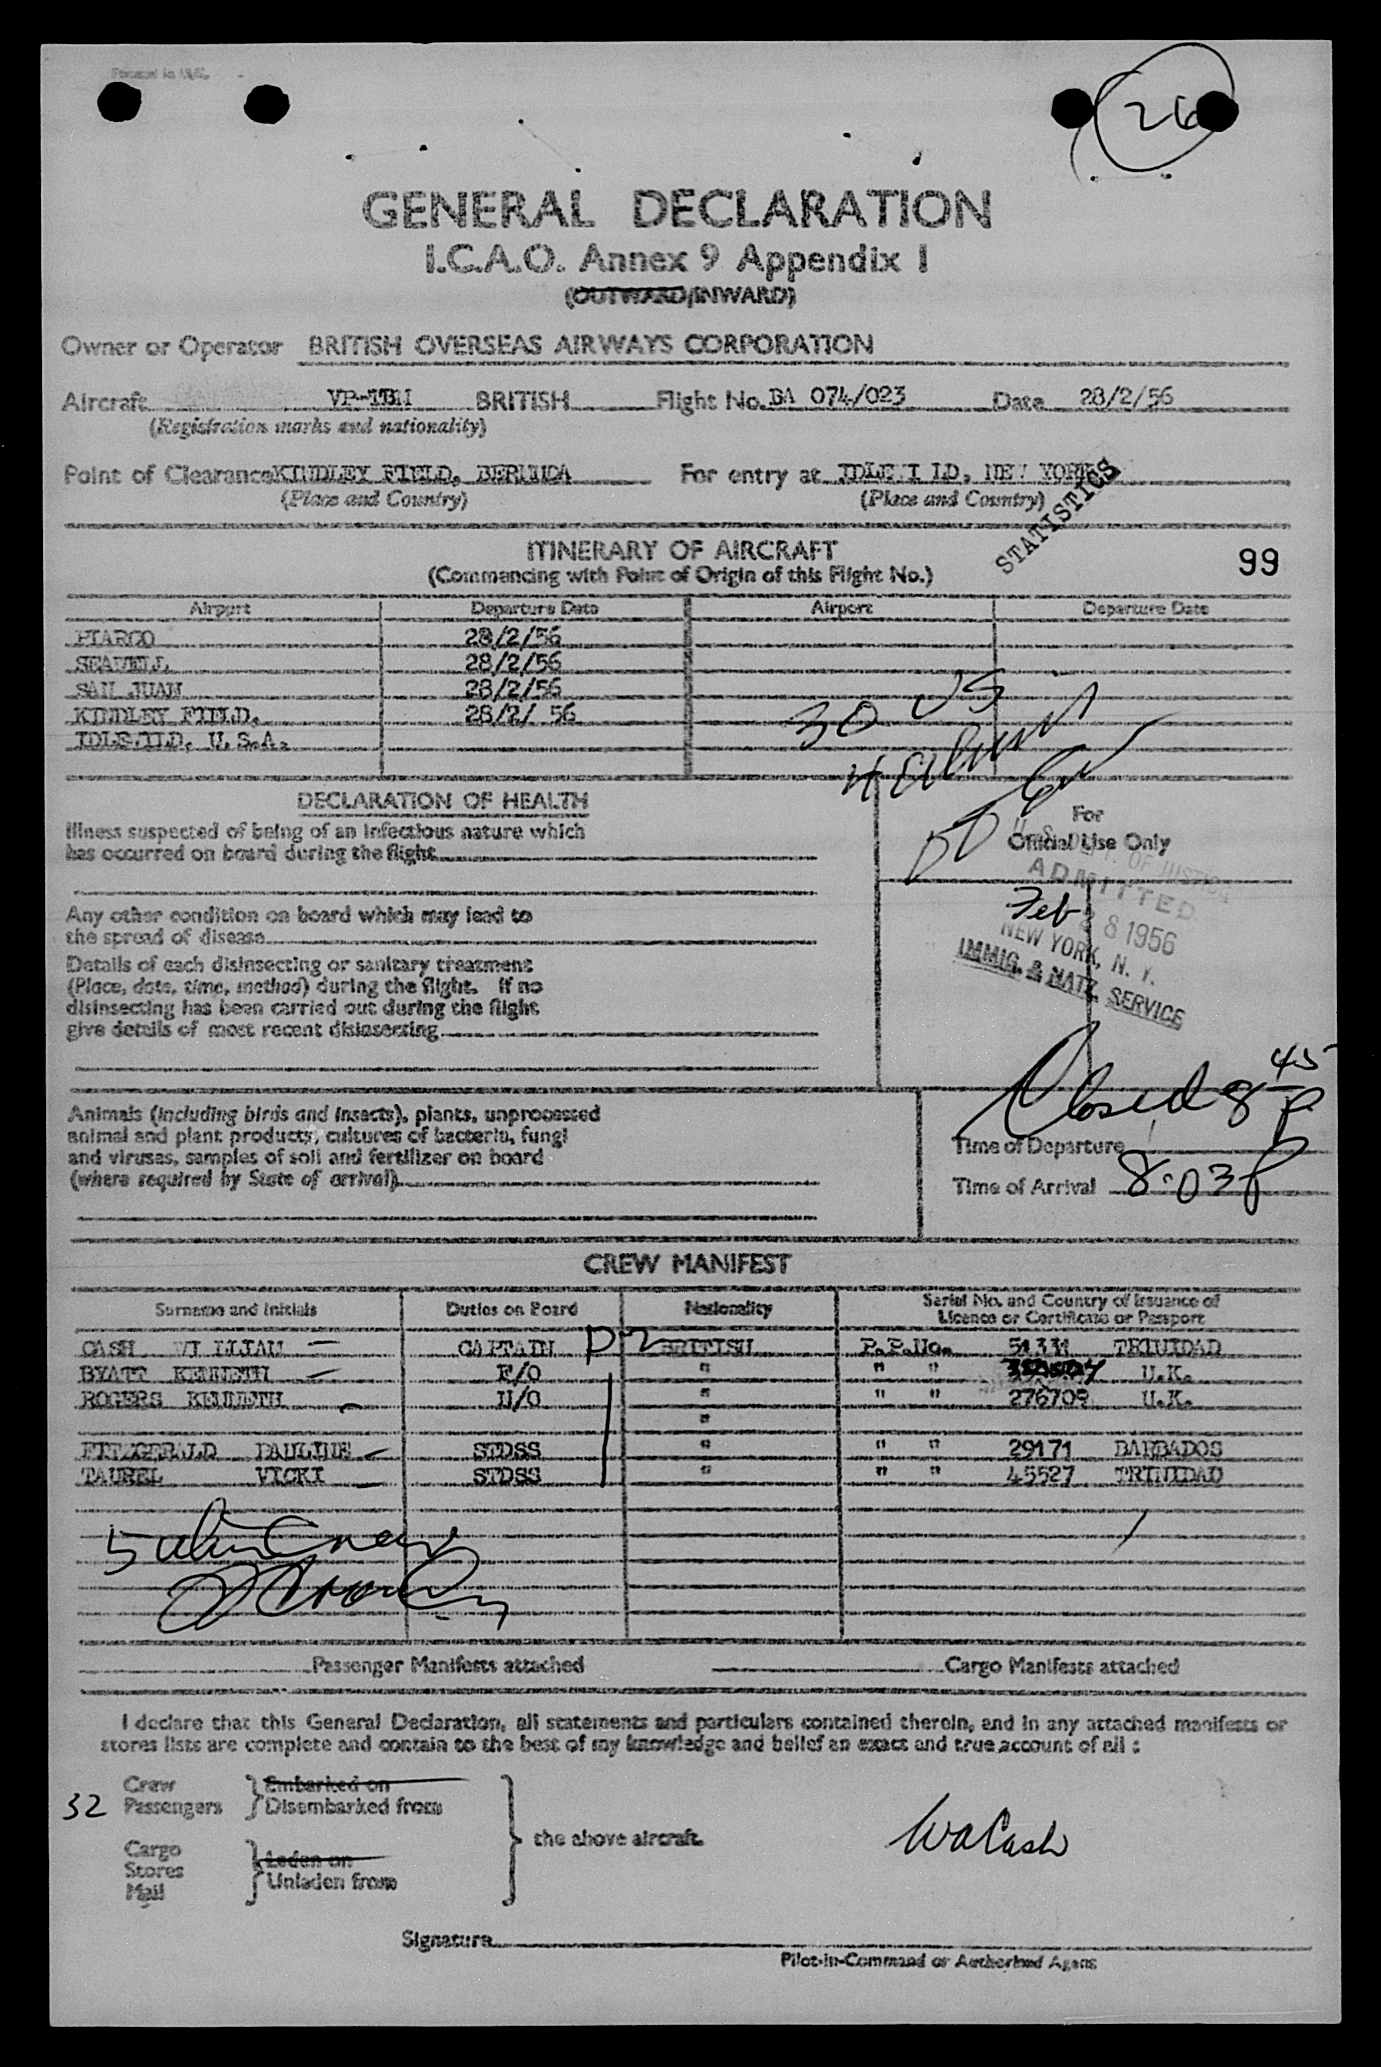 Printed in U.K.
26
GENERAL DECLARATION
I.C.A.O. Annex 9 Appendix 1
(OUTWARD/INWARD)
Owner or Operator BRITISH OVERSEAS AIRWAYS CORPORATION
Aircraft VP-TBN BRITISH Flight No. BA 074/023 Date 28/2/56
(Registration marks and nationality)
Point of Clearance KINDLEY FIELD, BERMUDA For entry at IDLEWILD, NEW YORK
(Place and Country) (Place and Country)
STATISTICS
ITINERARY OF AIRCRAFT
(Commencing with Point of Origin of this Flight No.)
99
Airport Departure Date Airport Departure Date
PIARCO 28/2/56
SEAWELL 28/2/56
SAN JUAN 28/2/56
KINDLEY FIELD, 28/2/ 56
IDLEWILD, U.S.A.
30 US
DECLARATION OF HEALTH
For
Official Use Only
Illness suspected of being of an infectious nature which
has occurred on board during the flight
U. S. DEPT. OF JUSTICE
ADMITTED
Feb 28 1956
NEW YORK, N. Y.
IMMIG. & NATZ. SERVICE
Any other condition on board which may lead to
the spread of disease
Details of each disinsecting or sanitary treatment
(Place, date, time, method) during the flight. If no
disinsecting has been carried out during the flight
give details of most recent disinsecting
Closed 8 45 P
Animals (including birds and insects), plants, unprocessed
animal and plant products, cultures of bacteria, fungi
and viruses, samples of soil and fertilizer on board
(where required by State of arrival)
Time of Departure
Time of Arrival 8:03 P
CREW MANIFEST
Surname and Initials Duties on Board Nationality Serial No. and Country of Issuance of
Licence or Certificate or Passport
CASH WILLIAM CAPTAIN D2 BRITISH P.P.No. 51331 TRINIDAD
BYATT KENNETH F/O " " " U.K.
ROGERS KENNETH N/O " " " 276709 U.K.
"
FITZGERALD PAULINE STDSS " " " 29171 BARBADOS
TAUREL VICKI STDSS " " " 45527 TRINIDAD
5 alien Crew
Passenger Manifests attached Cargo Manifests attached
I declare that this General Declaration, all statements and particulars contained therein, and in any attached manifests or
stores lists are complete and contain to the best of my knowledge and belief an exact and true account of all :
Crew Embarked on
32 Passengers Disembarked from
the above aircraft.
WACash
Cargo Laden on
Stores Unladen from
Mail
Signature
Pilot-in-Command or Authorised Agent